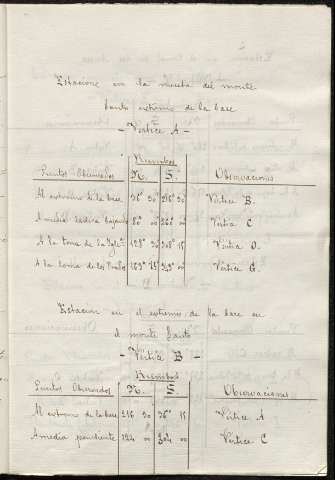 Estacione en la meseta del monte
Santo extremo de la base
- Vertice A -
Rumbos
Puntos Observados N. S. Observaciones
Al extremo de la base 36° 30' 216° 30' Vertice B.
A media ladera bajando 80° 00 260° 00 Vertice C
A la torre de la Iglª 128° 30 308° 15 Vertice D.
A la loma de los 163° 45 343° 00 Vertice G.
Estacion en el extremo de la base en
el monte Santo
- Vertice B -
Rumbos
Puntos Observados N. S. Observaciones
Al extremo de la base 216 30 36° 15 Vertice A
A media pendiente 124 00 304 00 Vertice C